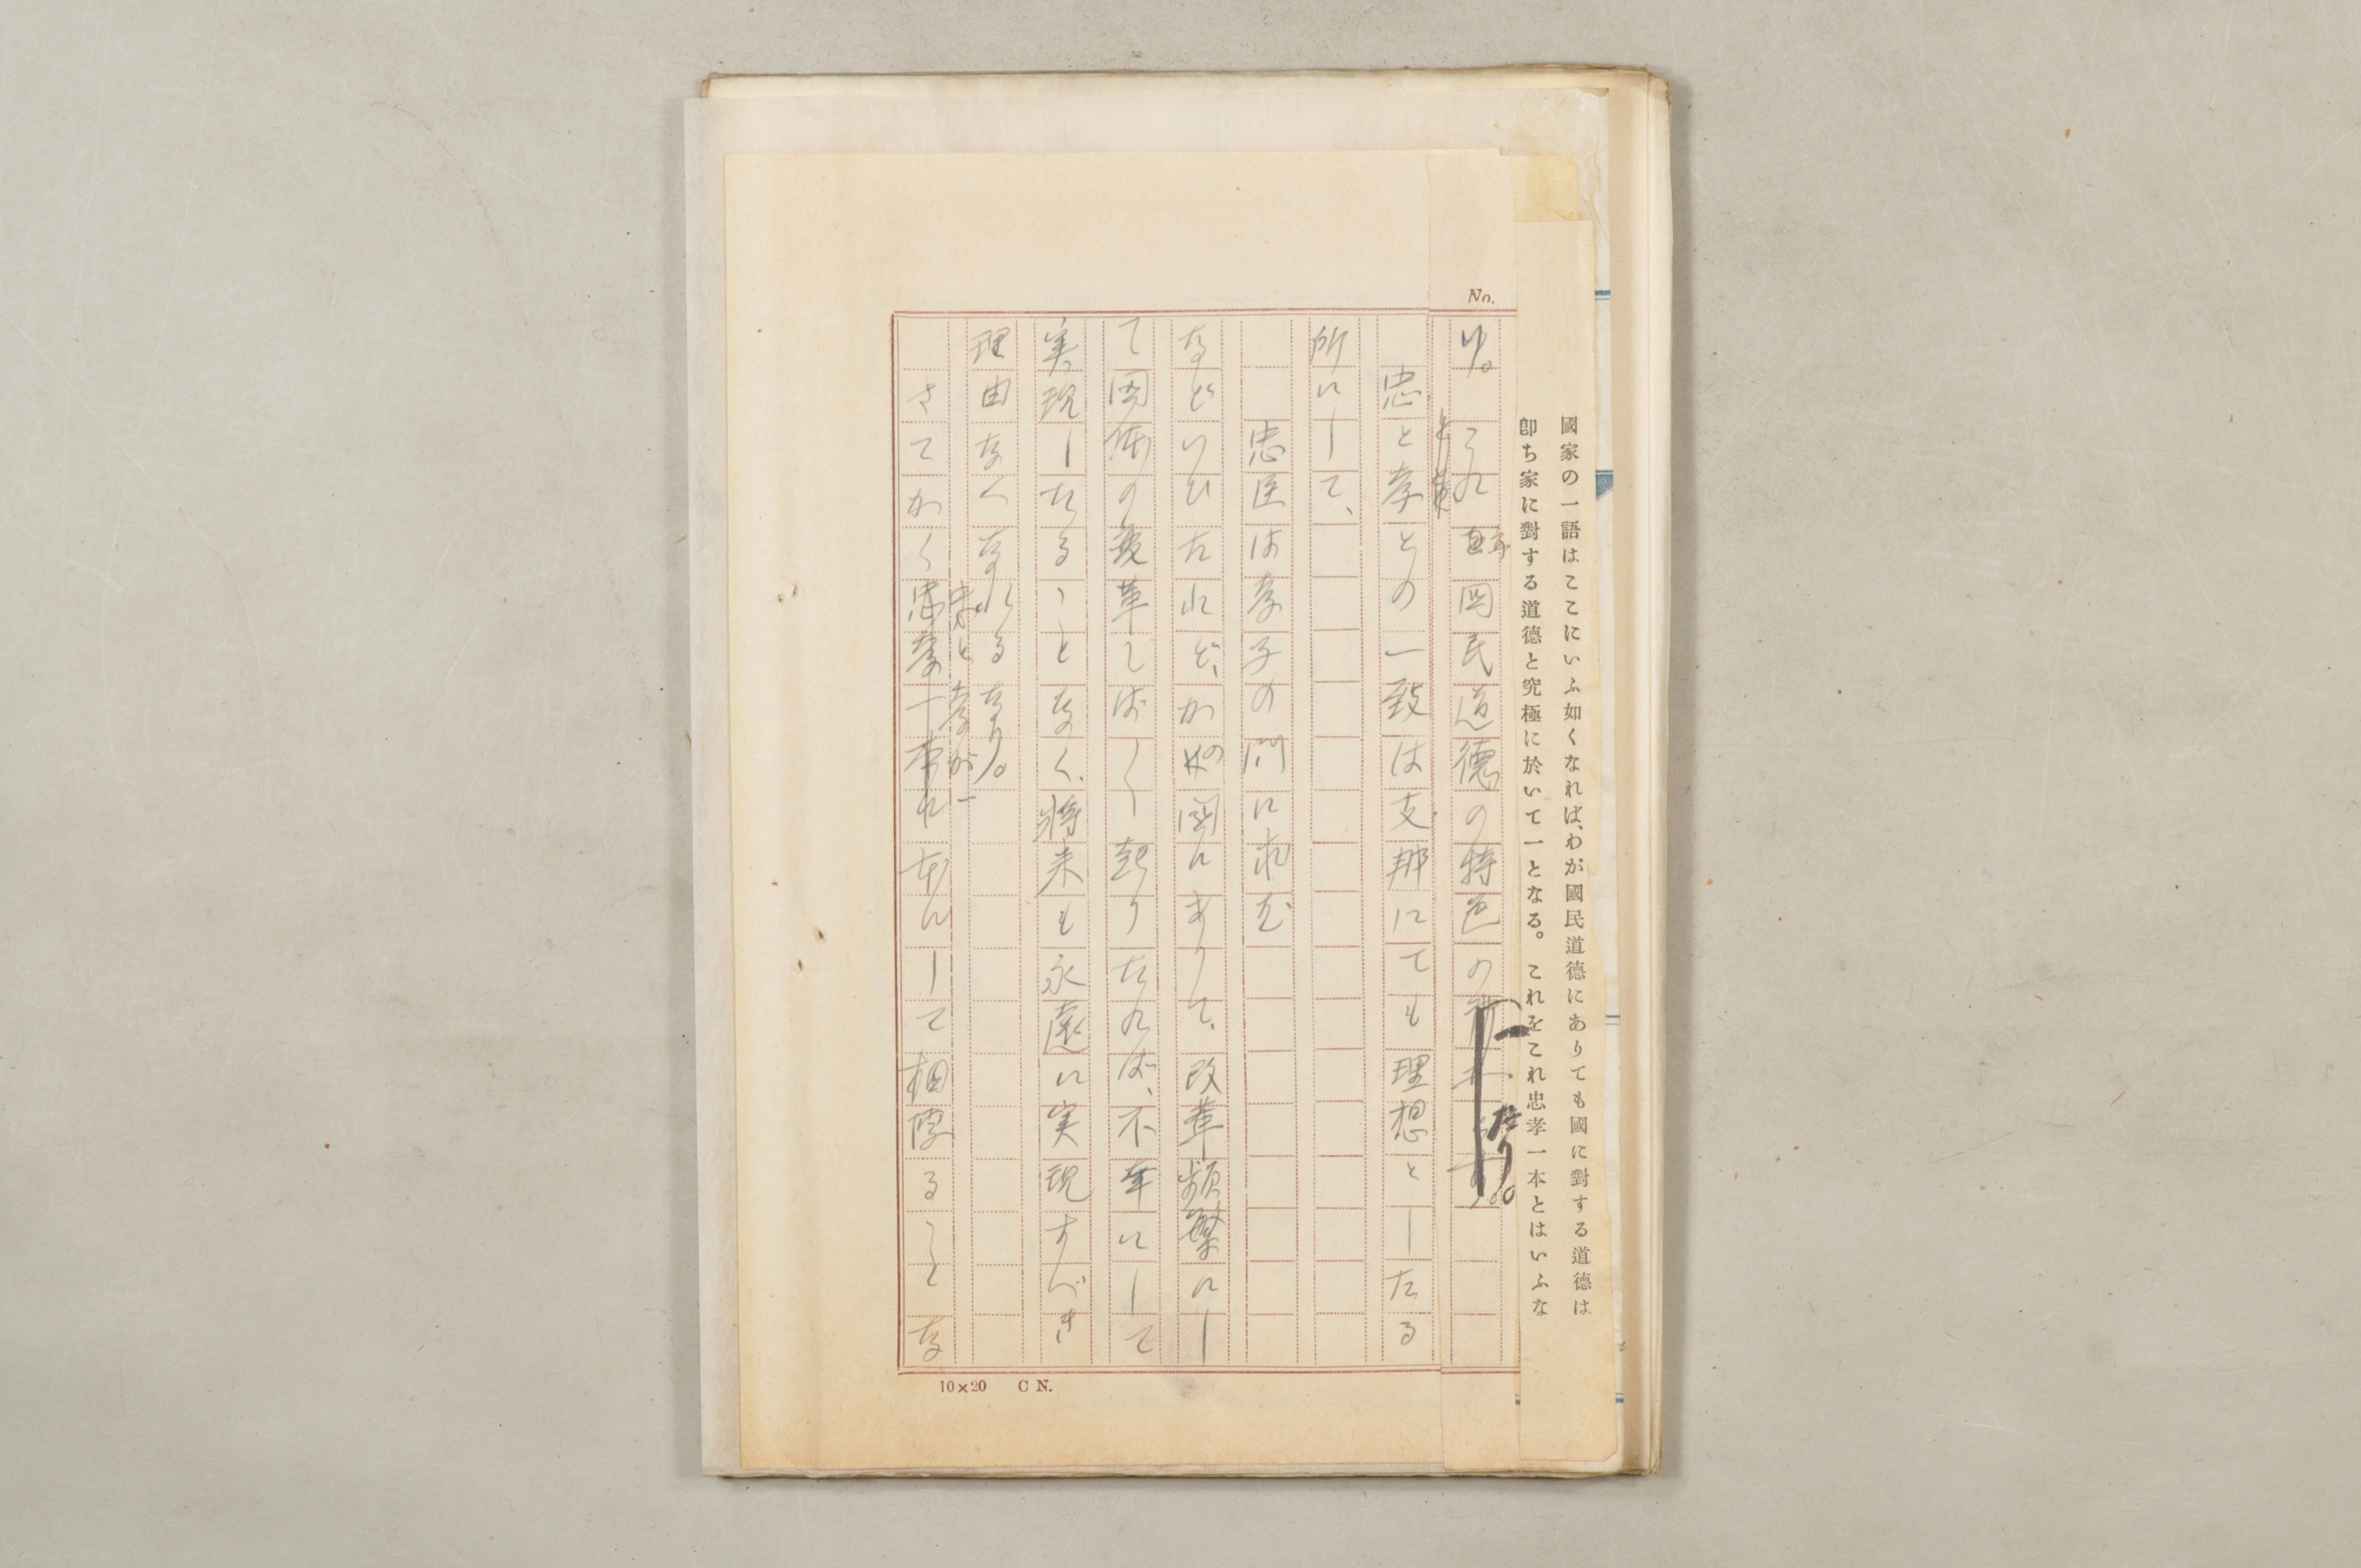 國家の一語はここにいふ如くなれば、わが國民道德にありても國に對する道德は
卽ち家に對する道德と究極に於いて一となる。これをこれ忠孝一本とはいふな
No.
り。これ國民道德の特色の
なり。
忠と孝との一致は支那にても理想としたる
所にして、
忠臣は孝子の門に求む
などいひたれど、かの國にありて、改革頻繁にし
て国体の変革しばしば起りたれば、不幸にして
実現したることなく、将来も永遠に実現すべき
理由なくなれるなり。
忠と孝が一
さてかく忠孝一本れ
本にして相悖ることな
10×20 C N.